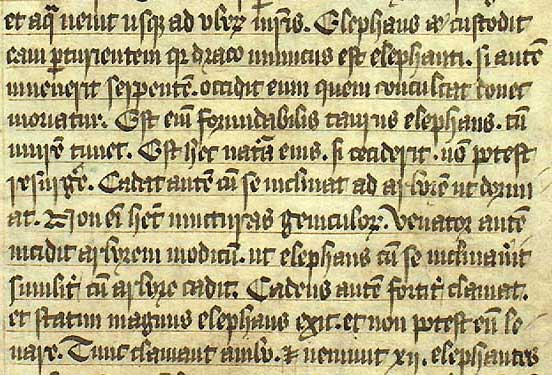 et aqᷓ uenit usqꝫ ad ubꝝ mr̄is. Elephans aū custodit
eam ꝑturientem qꝛ draco inimicus est elephanti. si autē
inuenerit serpentē. occidit eum quem conculcat donec
moriatur. Est eni᷑ formidabilis taurus elephans. tn̄
murē timet. Est hec nat᷑a eius. si ceciderit. nō potest
resurgꝰe. Cadit autē cū se inclinat ad arborē ut dormi
at. Non eī het iuncturas geniculoꝝ. Venator autē
incidit arborem modicū. ut elephans cū se inclinau᷑it
similit᷑ cū arbore cadit. Cadens autē fortit᷑ clamat.
et statim magnus elephans exit. et non potest eū le
uare. Tunc clamant ambo. ⁊ ueniunt xii. elephantes